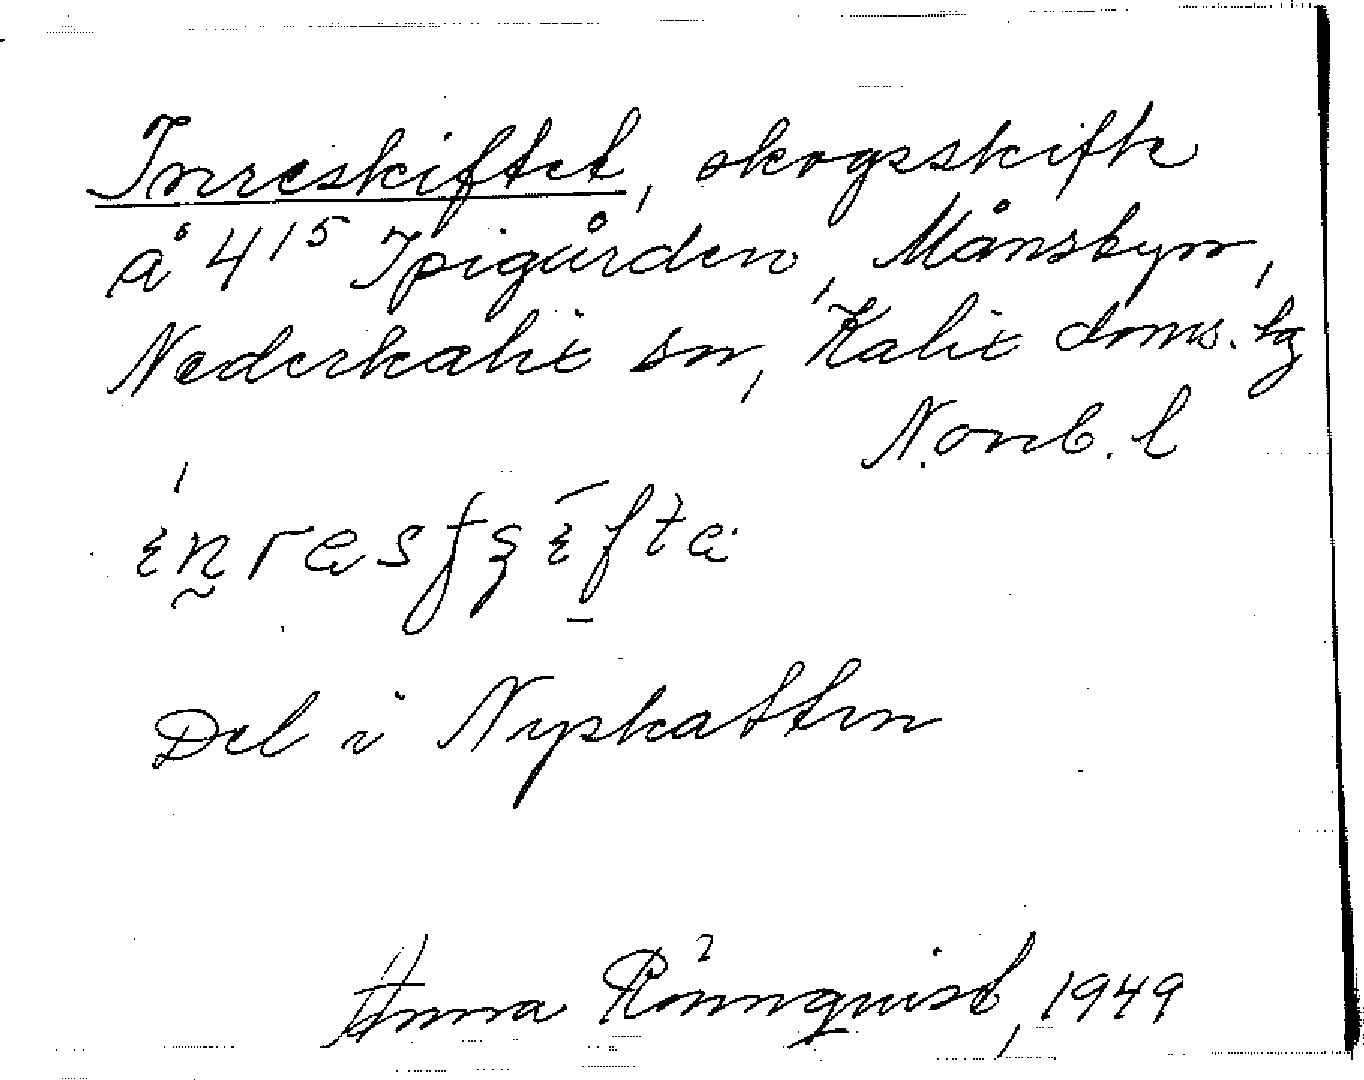 Inreskiftet, skogsskifte
å 4¹⁵ Ipigården, Månsbyn,
Nederkalix sn, Kalix doms. tg
Norrb. l
Del i Nyskatten
Anna Rönnquist, 1949